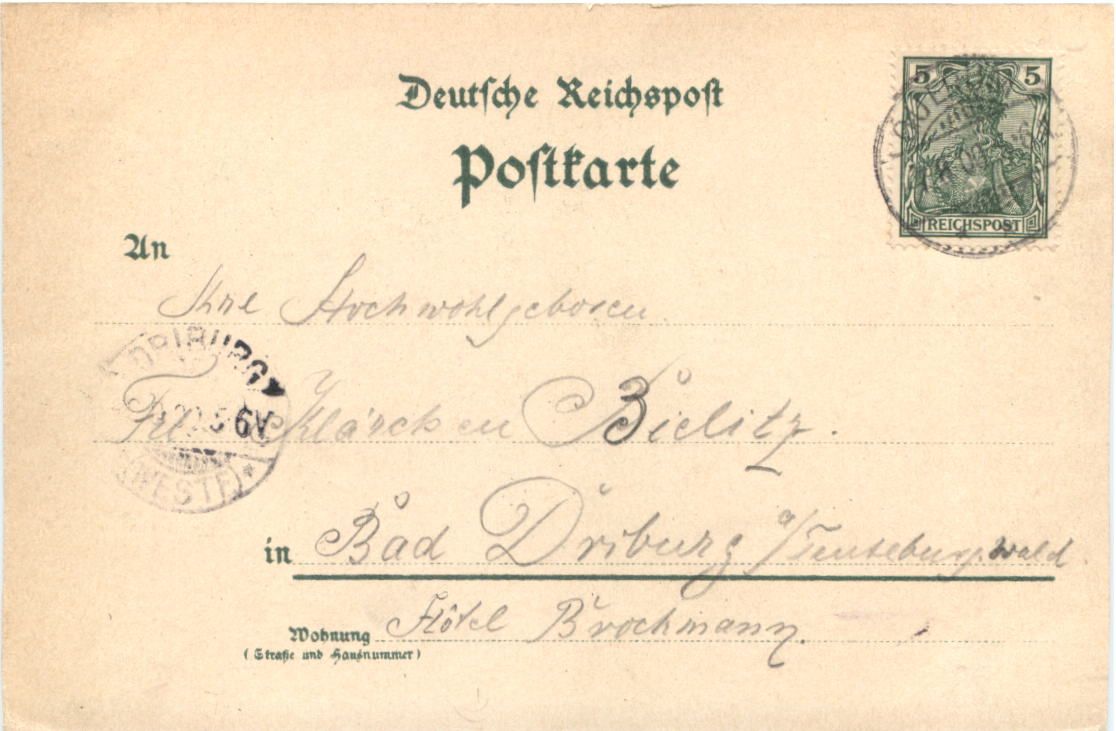 Deutsche Reichspost
Postkarte
5 5
REICHSPOST
An
Ihre Hochwohlgeboren
DRIBURG
Frl. Klärchen Bielitz.
(WESTF) *
in Bad Driburg a/Teuteburg.wald
Wohnung Hôtel Brochmann.
(Straße und Hausnummer)